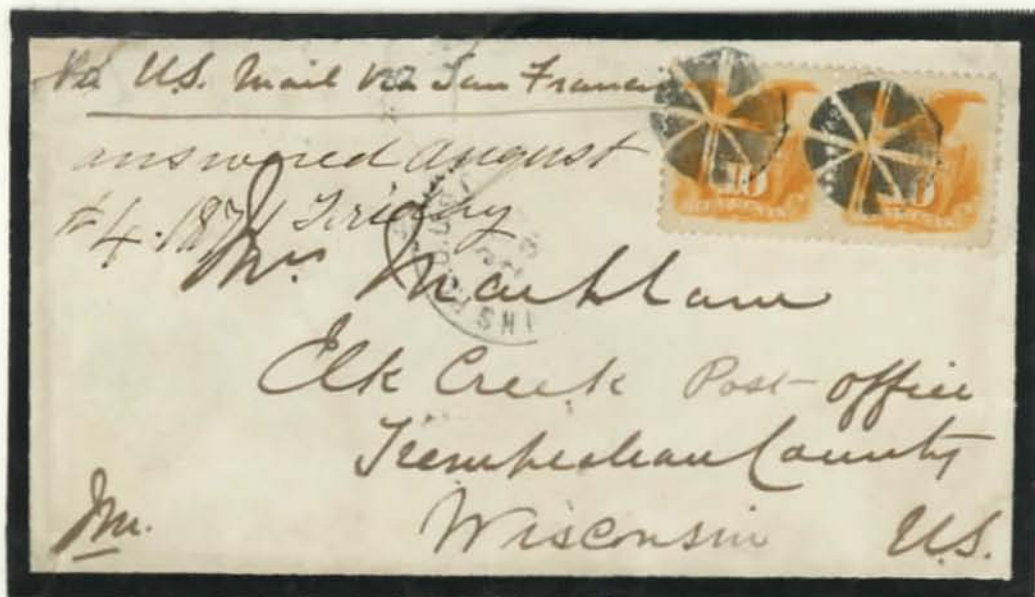 Via U.S. Mail via San Francis
answered August
#4. 1871 Friday
Mrs Markham
Elk Creek Post office
Trempealeau County
Wisconsin U.S.
10